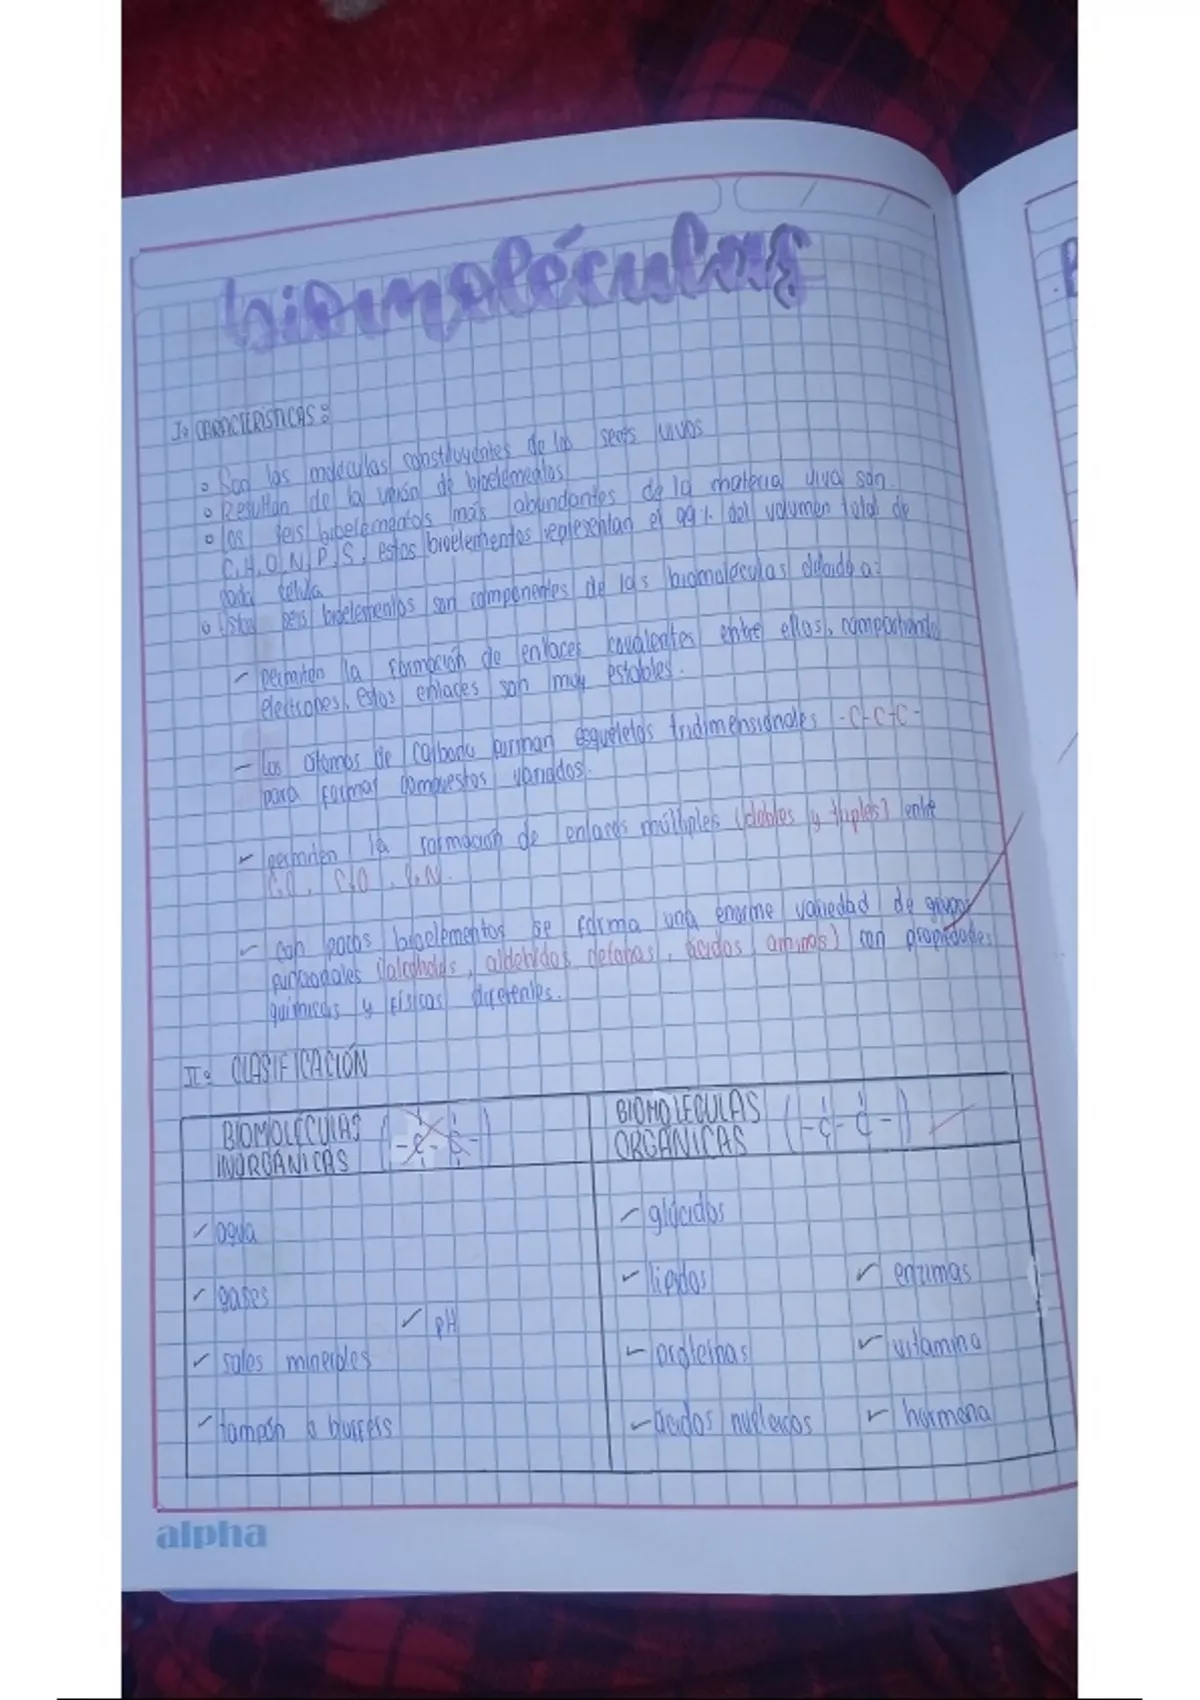 biomoléculas
I: CARACTERÍSTICAS:
Son las moléculas constituyentes de los seres vivos
Resultan de la unión de bioelementos
los seis bioelementos más abundantes de la materia viva son
C, H, O, N, P, S, estos bioelementos representan el 99% del volumen total de
cada célula
Estos seis bioelementos son componentes de las biomoléculas debido a:
- permiten la formación de enlaces covalentes entre ellos, compartiendo
electrones, estos enlaces son muy estables.
- Los átomos de carbono forman esqueletos tridimensionales -C-C-C-
para formar compuestos variados.
- permiten la formación de enlaces múltiples (dobles y triples) entre
- con pocos bioelementos se forma una enorme variedad de grupos
funcionales (alcoholes, aldehídos, cetonas, ácidos, aminos) con propiedades
químicas y físicas diferentes.
II: CLASIFICACIÓN
BIOMOLÉCULAS (-C-C-)
INORGÁNICAS
✓ agua
✓ gases
✓ pH
✓ sales minerales
✓ tampón o buffers
BIOMOLECULAS (-C-C-)
ORGÁNICAS
✓ glúcidos
✓ lípidos
✓ enzimas
✓ proteínas
✓ vitamina
✓ ácidos nucleicos
✓ hormona
alpha